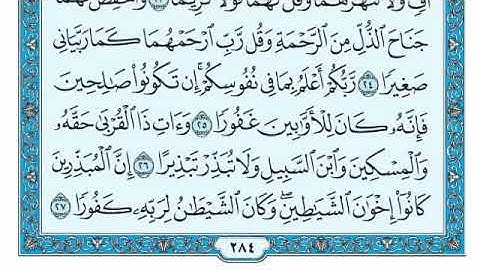 أُفٍّ وَلَا تَنْهَرْهُمَا وَقُل لَّهُمَا قَوْلًا كَرِيمًا ٢٣ وَٱخْفِضْ لَهُمَا
جَنَاحَ ٱلذُّلِّ مِنَ ٱلرَّحْمَةِ وَقُل رَّبِّ ٱرْحَمْهُمَا كَمَا رَبَّيَانِي
صَغِيرًا ٢٤ رَّبُّكُمْ أَعْلَمُ بِمَا فِي نُفُوسِكُمْ ۚ إِن تَكُونُوا۟ صَٰلِحِينَ
فَإِنَّهُۥ كَانَ لِلْأَوَّٰبِينَ غَفُورًا ٢٥ وَءَاتِ ذَا ٱلْقُرْبَىٰ حَقَّهُۥ
وَٱلْمِسْكِينَ وَٱبْنَ ٱلسَّبِيلِ وَلَا تُبَذِّرْ تَبْذِيرًا ٢٦ إِنَّ ٱلْمُبَذِّرِينَ
كَانُوٓا۟ إِخْوَٰنَ ٱلشَّيَٰطِينِ ۖ وَكَانَ ٱلشَّيْطَٰنُ لِرَبِّهِۦ كَفُورًا ٢٧
٢٨٤